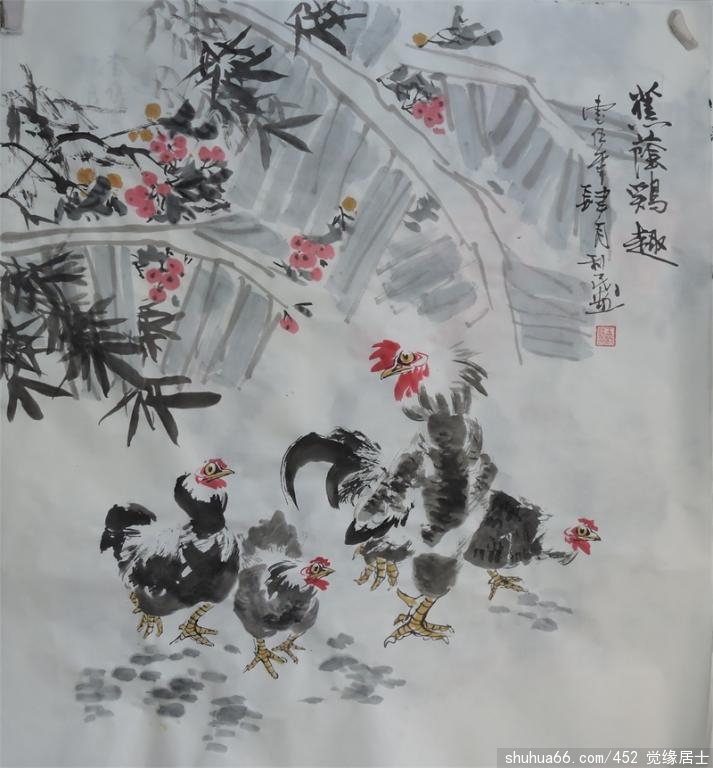 蕉蔭鷄趣
壹伍年肆月利民画
shuhua66.com/452 觉缘居士